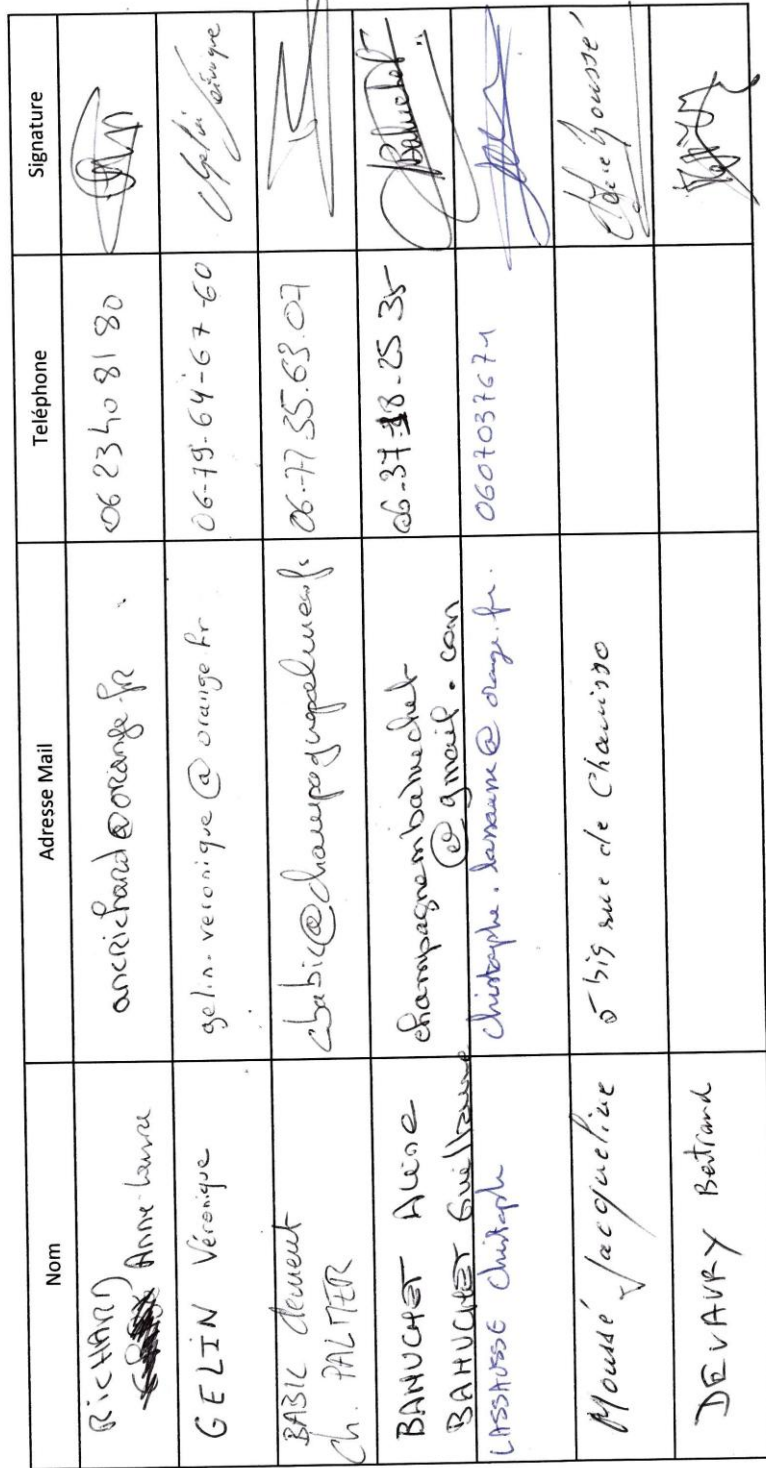 Nom Adresse Mail Teléphone Signature
RICHARD
Anne-Laure ancrichard@orange.fr 06 23 40 81 80
GELIN Véronique gelin.veronique@orange.fr 06-79-64-67-60
BABIC Clement
Ch. PALMER cbabic@champagnepalmer.fr 06.77.35.63.07
BAHUCHET Aline champagnembahuchet 06-37-18-25 35 Bahuchet
BAHUCHET Guillaume @gmail.com
LASSAUSSE Christophe christophe.lassausse@orange.fr. 0607037671
Moussé Jacqueline 5 bis rue de Chamisso Moussé
DEVAVRY Bertrand